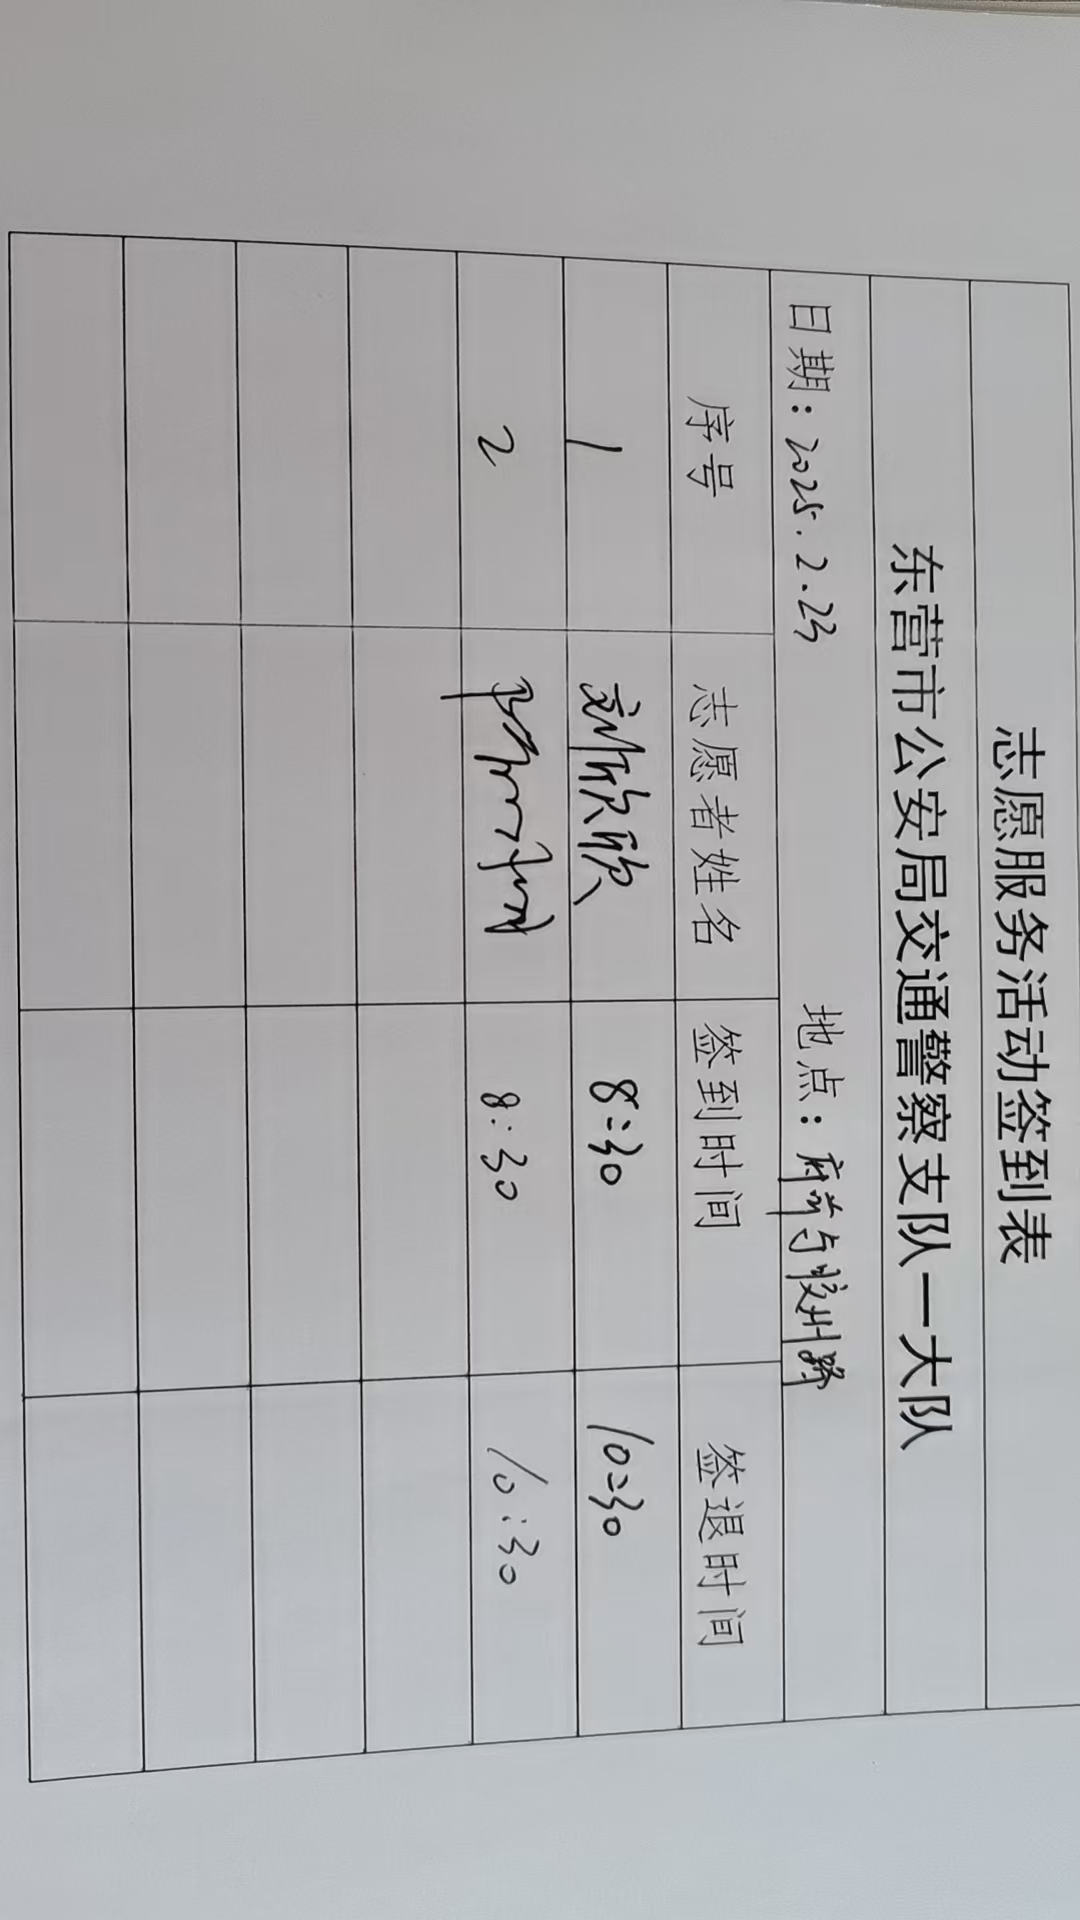 志愿服务活动签到表
东营市公安局交通警察支队一大队
日期：2025.2.23 地点：府前与胶州路
序号 志愿者姓名 签到时间 签退时间
1 刘欣欣 8:30 10:30
2 8:30 10:30